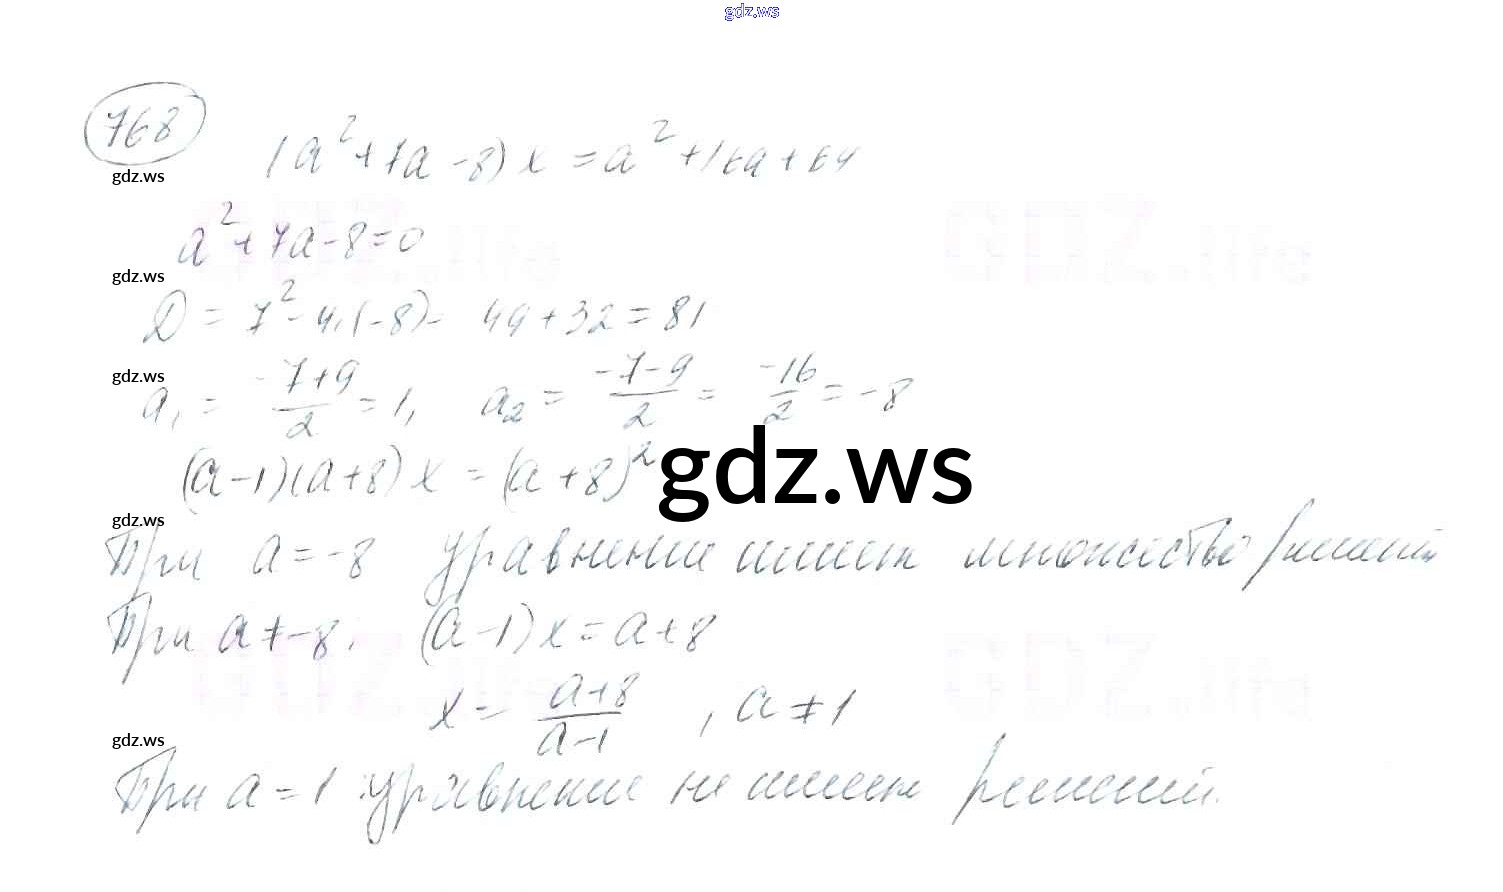 gdz.ws
768
(a²+7a-8)x=a²+16a+64
gdz.ws
a²+7a-8=0
gdz.ws
D=7²-4·(-8)= 49+32=81
gdz.ws
a₁= (-7+9)/2 =1, a₂= (-7-9)/2 = -16/2 = -8
(a-1)(a+8)x=(a+8)²
gdz.ws
gdz.ws
При a=-8 уравнение имеет множество решений
При a≠-8: (a-1)x=a+8
x= (a+8)/(a-1) , a≠1
gdz.ws
При a=1 уравнение не имеет решений.
GDZ.life
GDZ.life
GDZ.life
GDZ.life